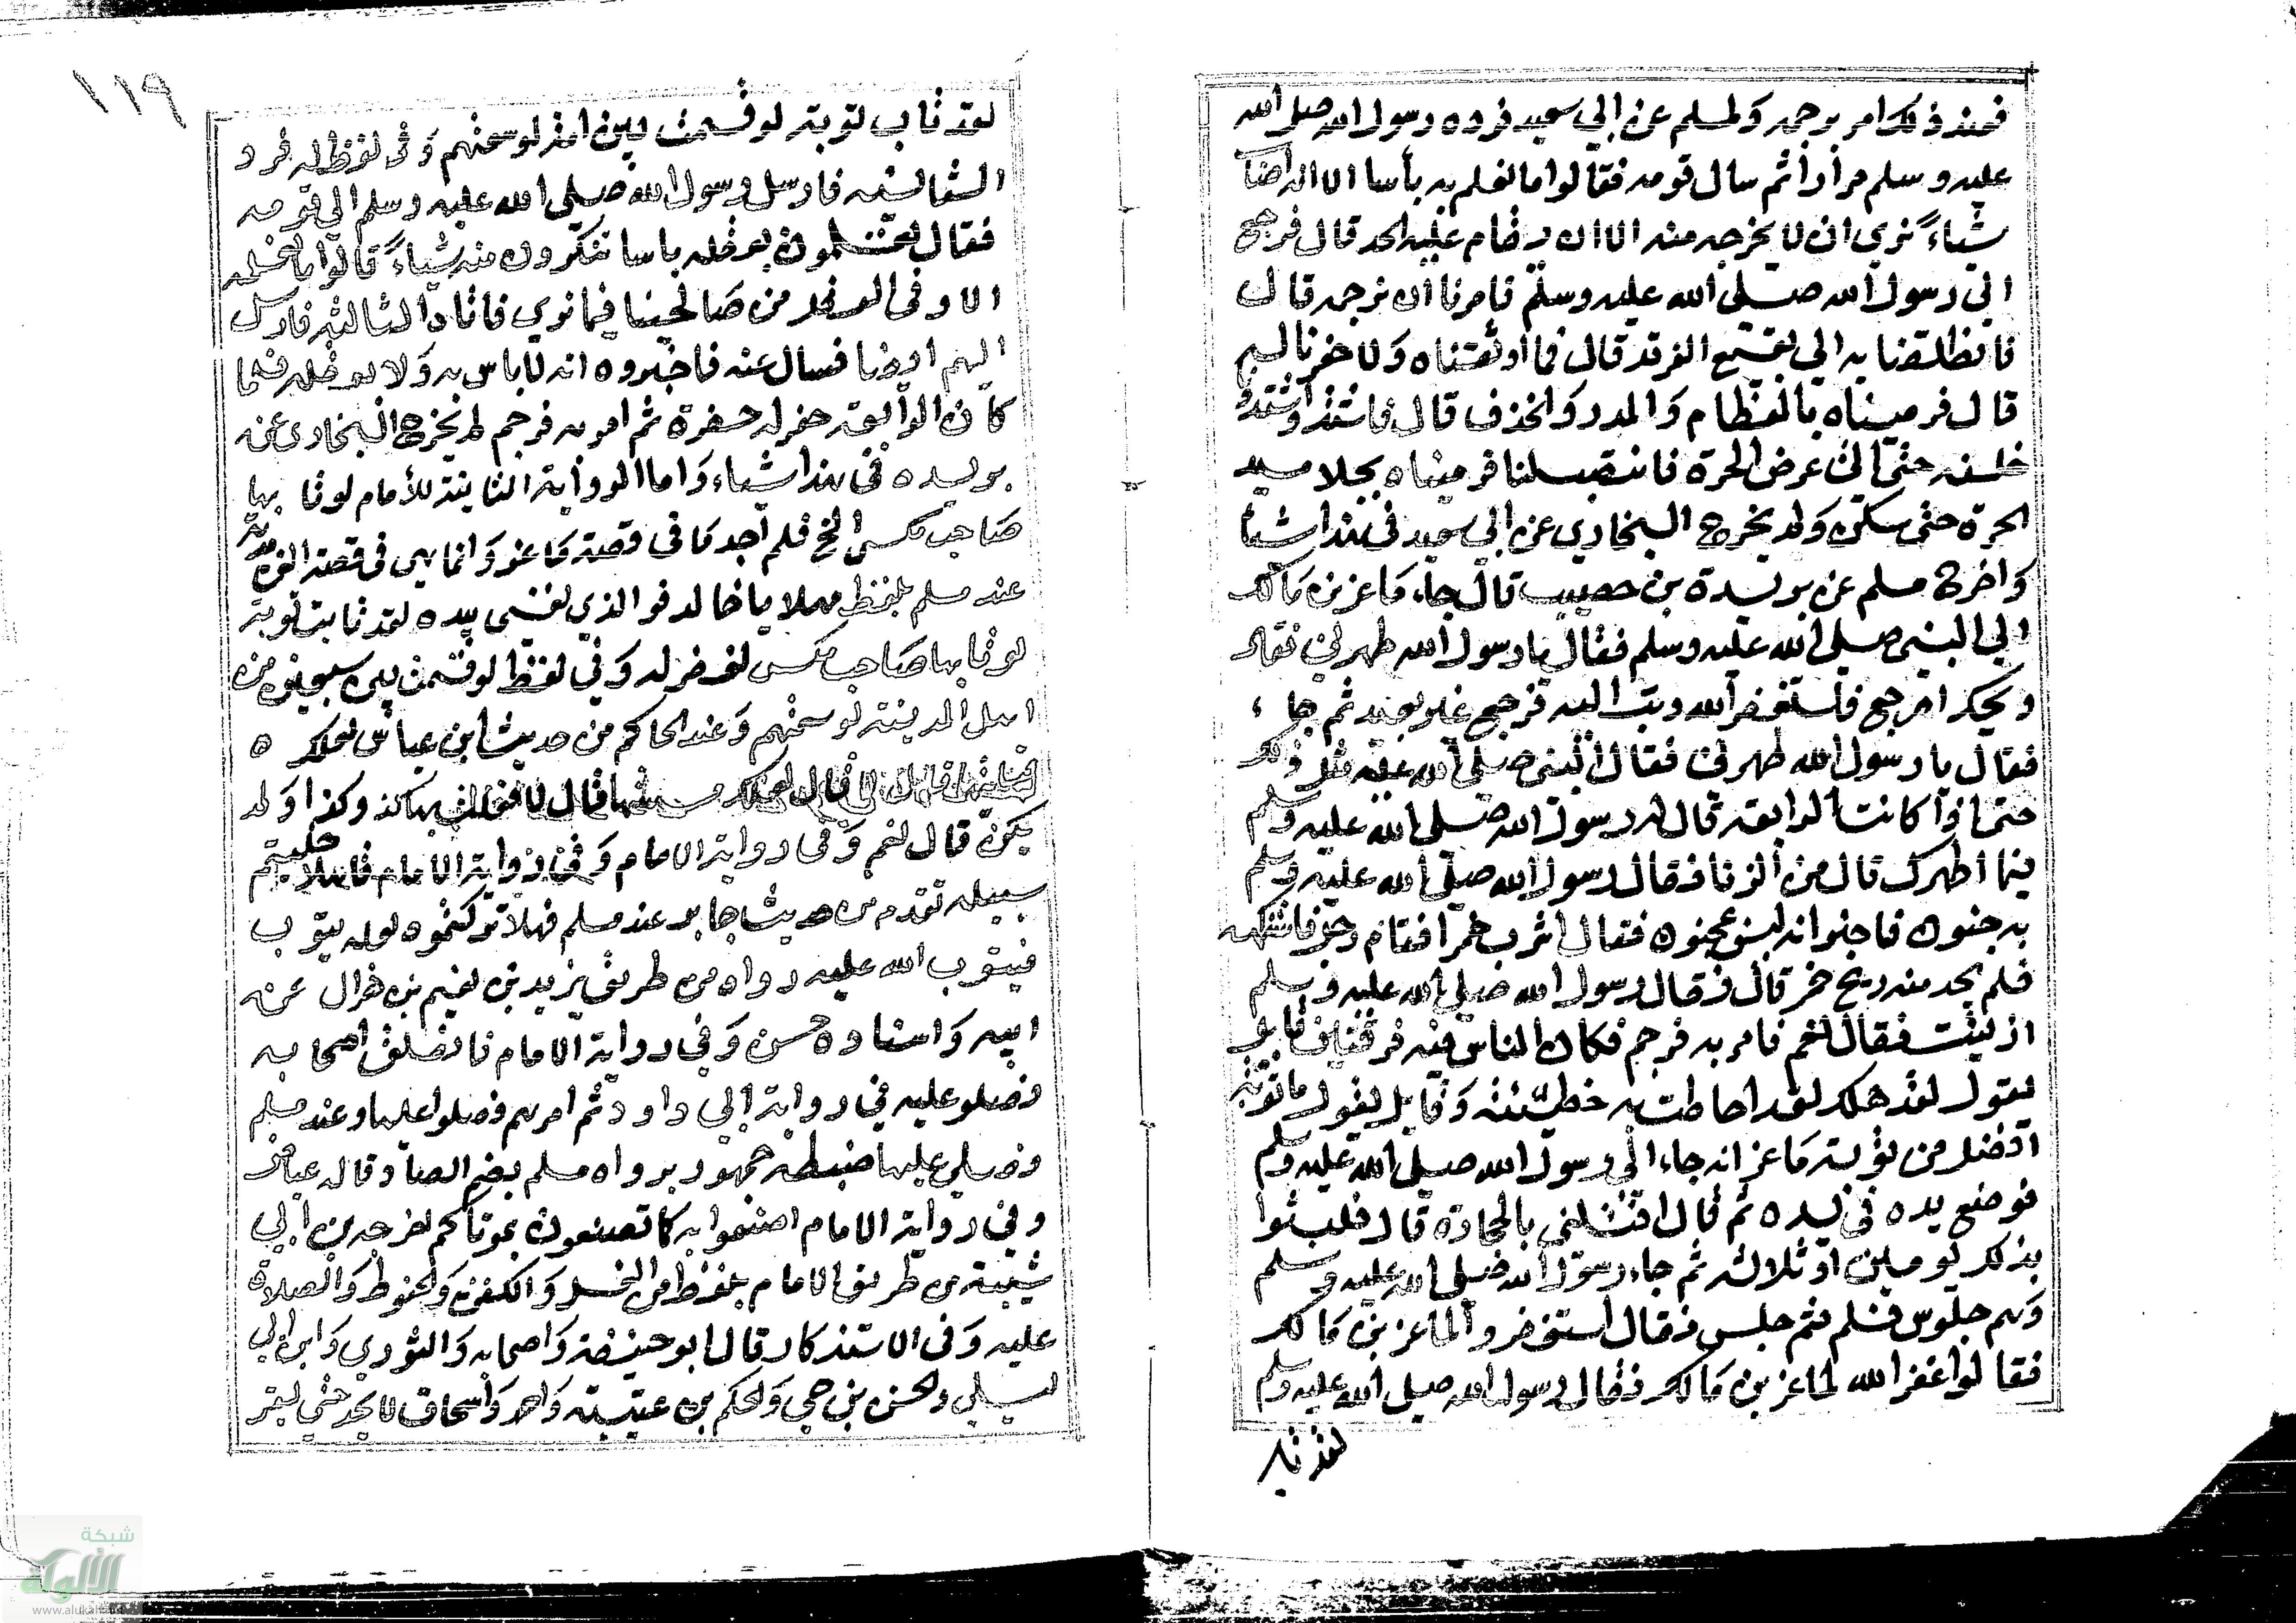 فعند ذلك امر برجمه ولمسلم عن ابي سعيد فرده رسول الله صلى الله
عليه وسلم مرارا ثم سال قومه فقالوا ما نعلم به بأسا الا انه اصاب
شياء نرى ان لا يخرجه منه الا ان يقام عليه الحد قال فرجع
الى رسول الله صلى الله عليه وسلم فامرنا ان نرجمه قال
فانطلقنا به الى بقيع الغرقد قال فما اوثقناه ولا حفرنا له
قال فرميناه بالعظام والمدر والخذف قال فاشتد واشتددنا
خلفه حتى اتى عرض الحرة فانتصب لنا فرميناه بجلاميد
الحرة حتى سكن ولم يخرج البخاري عن ابي سعيد في هذا شيأ
واخرج مسلم عن بريدة بن حصيب قال جاء ماعز بن مالك
الى النبي صلى الله عليه وسلم فقال يا رسول الله طهرني فقال
ويحك ارجع فاستغفر الله وتب اليه فرجع غير بعيد ثم جاء
فقال يا رسول الله طهرني فقال النبي صلى الله عليه مثل ذلك
حتى اذا كانت الرابعة قال له رسول الله صلى الله عليه وسلم
فيما اطهرك قال من الزنا فقال رسول الله صلى الله عليه وسلم
به جنون فاخبر انه ليس بمجنون فقال اشرب خمرا فقام رجل فاستنكهه
فلم يجد منه ريح خمر قال فقال رسول الله صلى الله عليه وسلم
ازنيت فقال نعم فامر به فرجم فكان الناس فيه فرقتين قايل
يقول لقد هلك لقد احاطت به خطيئته وقايل يقول ما توبة
افضل من توبة ماعز انه جاء الى رسول الله صلى الله عليه وسلم
فوضع يده في يده ثم قال اقتلني بالحجارة قال فلبثوا
بذلك يومين او ثلاث ثم جاء رسول الله صلى الله عليه وسلم
وهم جلوس فسلم ثم جلس فقال استغفروا لماعز بن مالك
فقالوا غفر الله لماعز بن مالك فقال رسول الله صلى الله عليه وسلم
لقد تاب
١١٩
لقد تاب توبة لو قسمت بين امة لوسعتهم وفي لفظ له فرد
الثانية فارسل رسول الله صلى الله عليه وسلم الى قومه
فقال تعلمون بعقله باسا تنكرون منه شياء قالوا ما نعلمه
الا وفي العقل من صالحينا فيما نرى فاتاه الثالثة فارسل
اليهم ايضا فسال عنه فاخبروه انه لا باس به ولا بعقله فلما
كان الرابعة حفر له حفرة ثم امر به فرجم لم يخرج البخاري عن
بريده في هذا شياء واما الرواية الثانية للأمام لو تابها
صاحب مكس الخ فلم اجدها في قصة ماعز وانما هي في قصة الغامدية
عند مسلم بلفظ مهلا يا خالد فوالذي نفسي بيده لقد تابت توبة
لو تابها صاحب مكس لغفر له وفي لفظ لو قسمت بين سبعين من
اهل المدينة لوسعتهم وعند الحاكم من حديث ابن عباس لعلك
قال لعلك مسستها قال لا قال فعلت بها كذا وكذا ولم
يكن قال نعم وفي رواية الامام وفي رواية الامام فهلا خليتم
سبيله تقدم من حديث جابر عند مسلم فهلا تركتموه لعله يتوب
فيتوب الله عليه رواه من طريق يزيد بن نعيم بن هزال عن
ابيه واسناده حسن وفي رواية الامام فانطلق اصحابه
فصلوا عليه في رواية ابي داود ثم امرهم فصلوا عليها وعند مسلم
فصلى عليها ضبطه جمهور رواه مسلم بضم الصاد قاله عياض
وفي رواية الامام اصنعوا به كما تصنعون بموتاكم اخرجه ابن ابي
شيبة من طريق الامام بلفظ من الغسل والكفن والحنوط والصلاة
عليه وفي الاستذكار قال ابو حنيفة واصحابه والثوري وابن ابي
ليلى والحسن بن حي والحكم بن عتيبة واحمد واسحاق لا يحد حتى يقر
شبكة
الألوكة